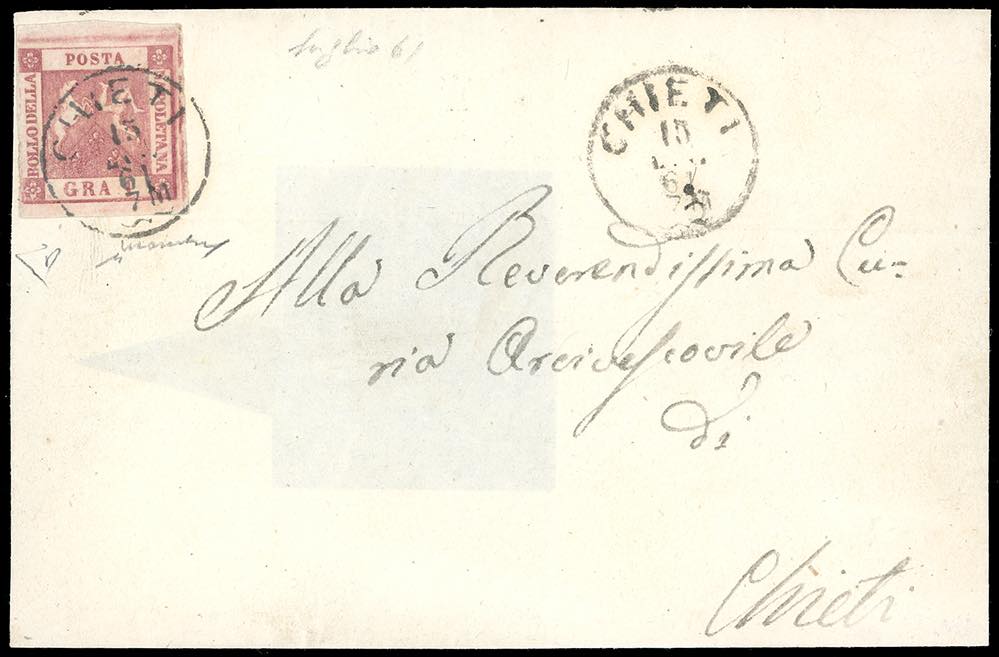 luglio 61
POSTA
BOLLO DELLA
POLETANA
GRA
CHIETI
15
61
CHIETI
15
61
Alla Reverendissima Cu-
ria Arcivescovile
di
Chieti